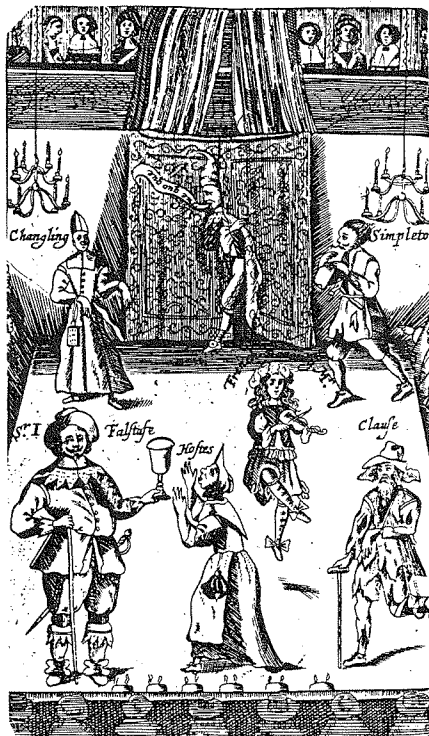 Changling
Simpleto
Sr. I Falstafe
Hostes
Clause